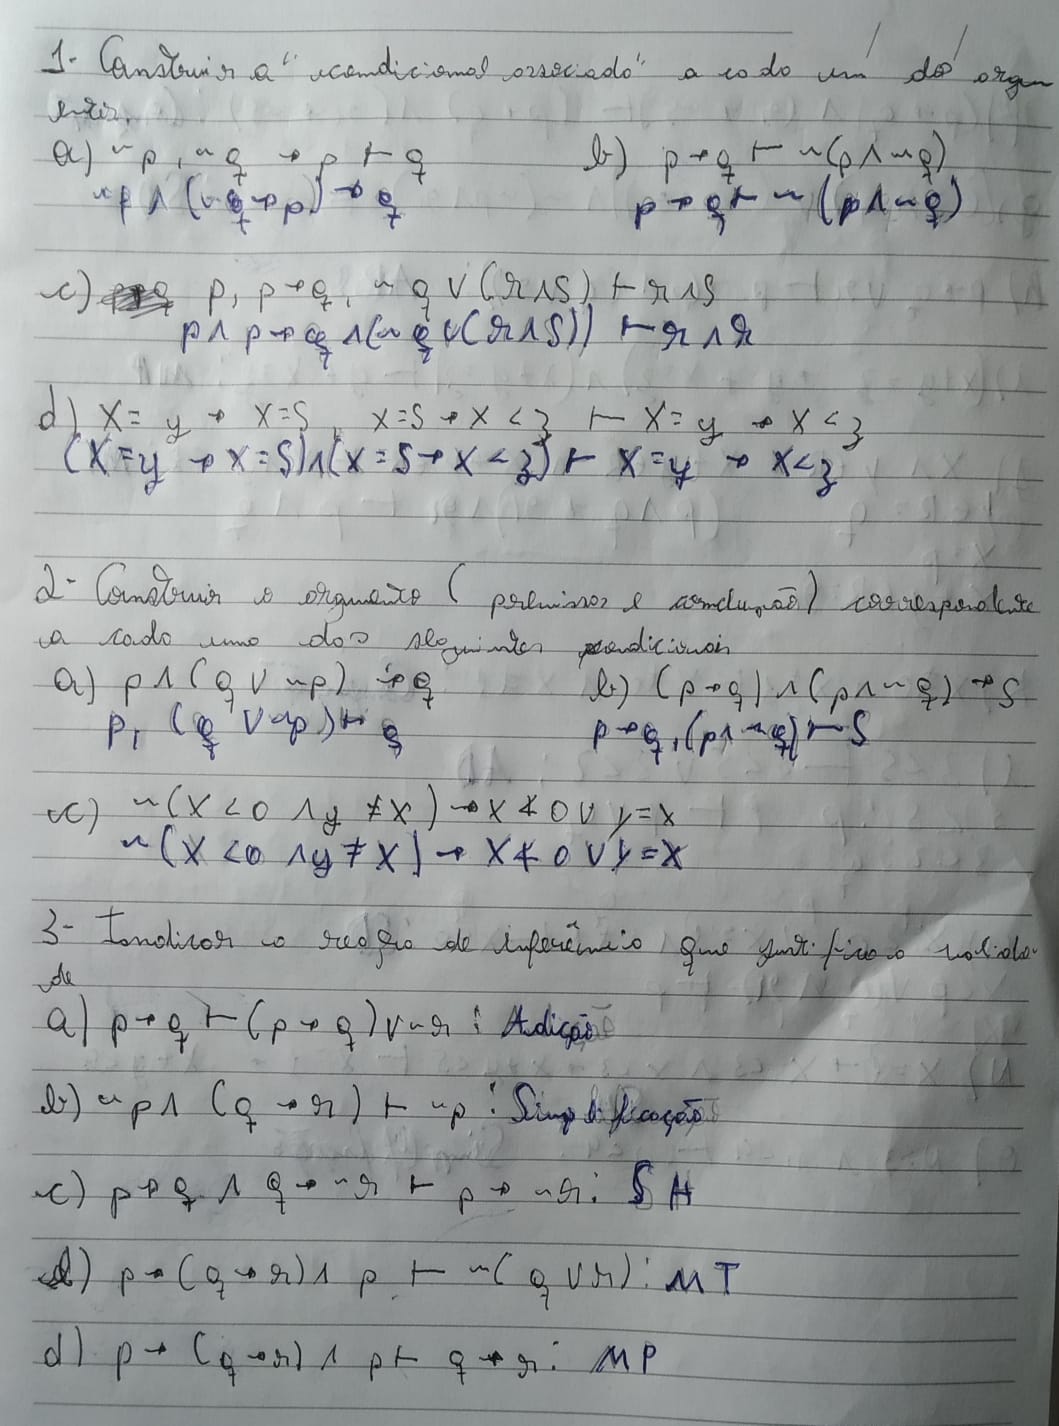 1- Construir a "condicional associado" a cada um dos argum
entos.
a) ~p, ~q → p ⊢ q b) p → q ⊢ ~(p ∧ ~q)
~p ∧ (~q → p) → q p → q ⊢ ~(p ∧ ~q)
c) p, p → q, ~q ∨ (r ∧ s) ⊢ r ∧ s
p ∧ p → q ∧ (~q ∨ (r ∧ s)) ⊢ r ∧ r
d) x = y → x = 5, x = 5 → x < z ⊢ x = y → x < z
(x = y → x = 5) ∧ (x = 5 → x < z) ⊢ x = y → x < z
2- Construir o argumento (premissas e conclusão) correspondente
a cada uma dos seguintes condicionais
a) p ∧ (q ∨ ~p) → q b) (p → q) ∧ (p ∧ ~q) → s
p, (q ∨ ~p) ⊢ q p → q, (p ∧ ~q) ⊢ s
c) ~(x < 0 ∧ y ≠ x) → x ≮ 0 ∨ y = x
~(x < 0 ∧ y ≠ x) → x ≮ 0 ∨ y = x
3- Indicar a regra de inferência que justifica a valida-
de
a) p → q ⊢ (p → q) ∨ ~r : Adição
b) ~p ∧ (q → r) ⊢ ~p : Simplificação
c) p → q ∧ q → ~r ⊢ p → ~r : SH
d) p → (q → r) ∧ p ⊢ ~(q ∨ r) : MT
d) p → (q → r) ∧ p ⊢ q → r : MP